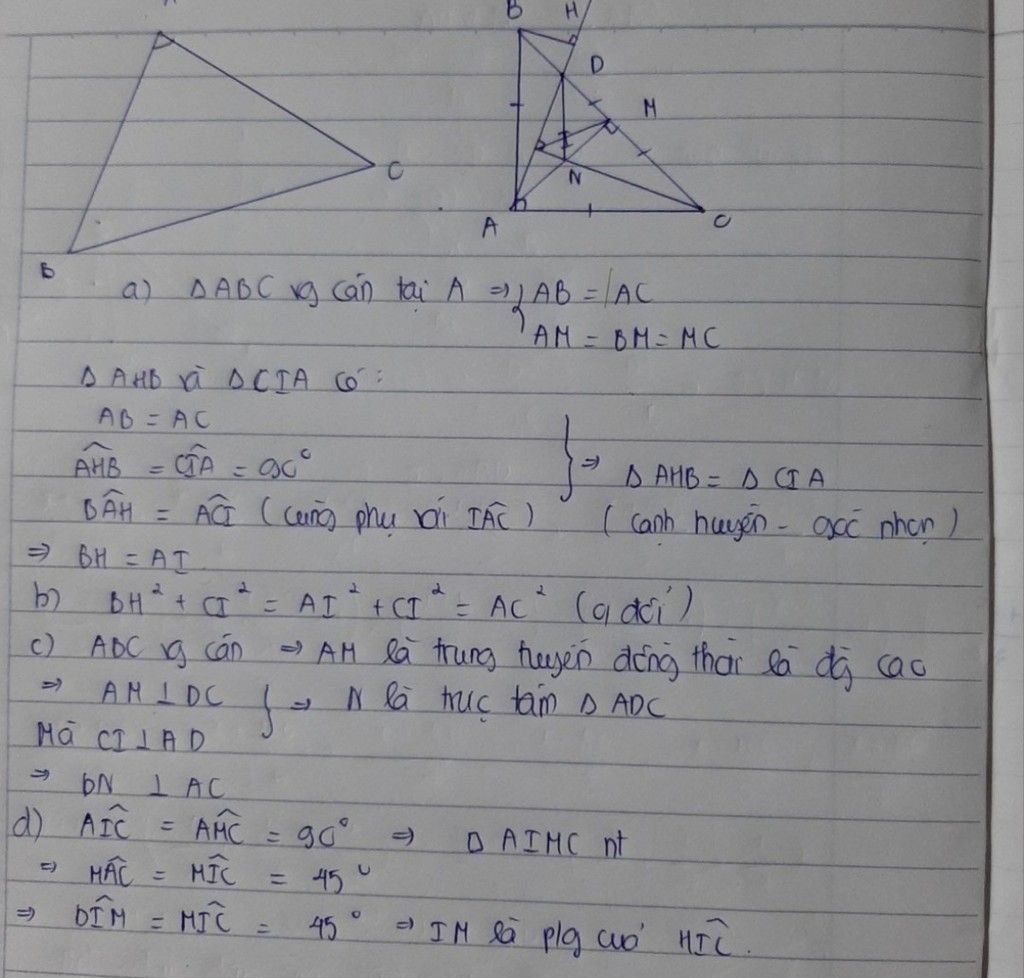 B H
D
M
C
N
A C
B
a) ΔABC vg cân tại A ⇒ { AB = AC
AM = BM = MC
Δ AHB và Δ CIA có :
AB = AC
AHB^ = CIA^ = 90°
BAH^ = ACI^ (cùng phụ với IAC^) } ⇒ Δ AHB = Δ CIA
(cạnh huyền - góc nhọn)
⇒ BH = AI
b) BH² + CI² = AI² + CI² = AC² (q đổi)
c) ABC vg cân ⇒ AM là trung tuyến đồng thời là đg cao
⇒ AM ⊥ DC } ⇒ N là trực tâm Δ ADC
Mà CI ⊥ AD
⇒ DN ⊥ AC
d) AIC^ = AMC^ = 90° ⇒ Δ AIMC nt
⇒ MAC^ = MIC^ = 45°
⇒ DIM^ = MIC^ = 45° ⇒ IM là p/g của HIC^.